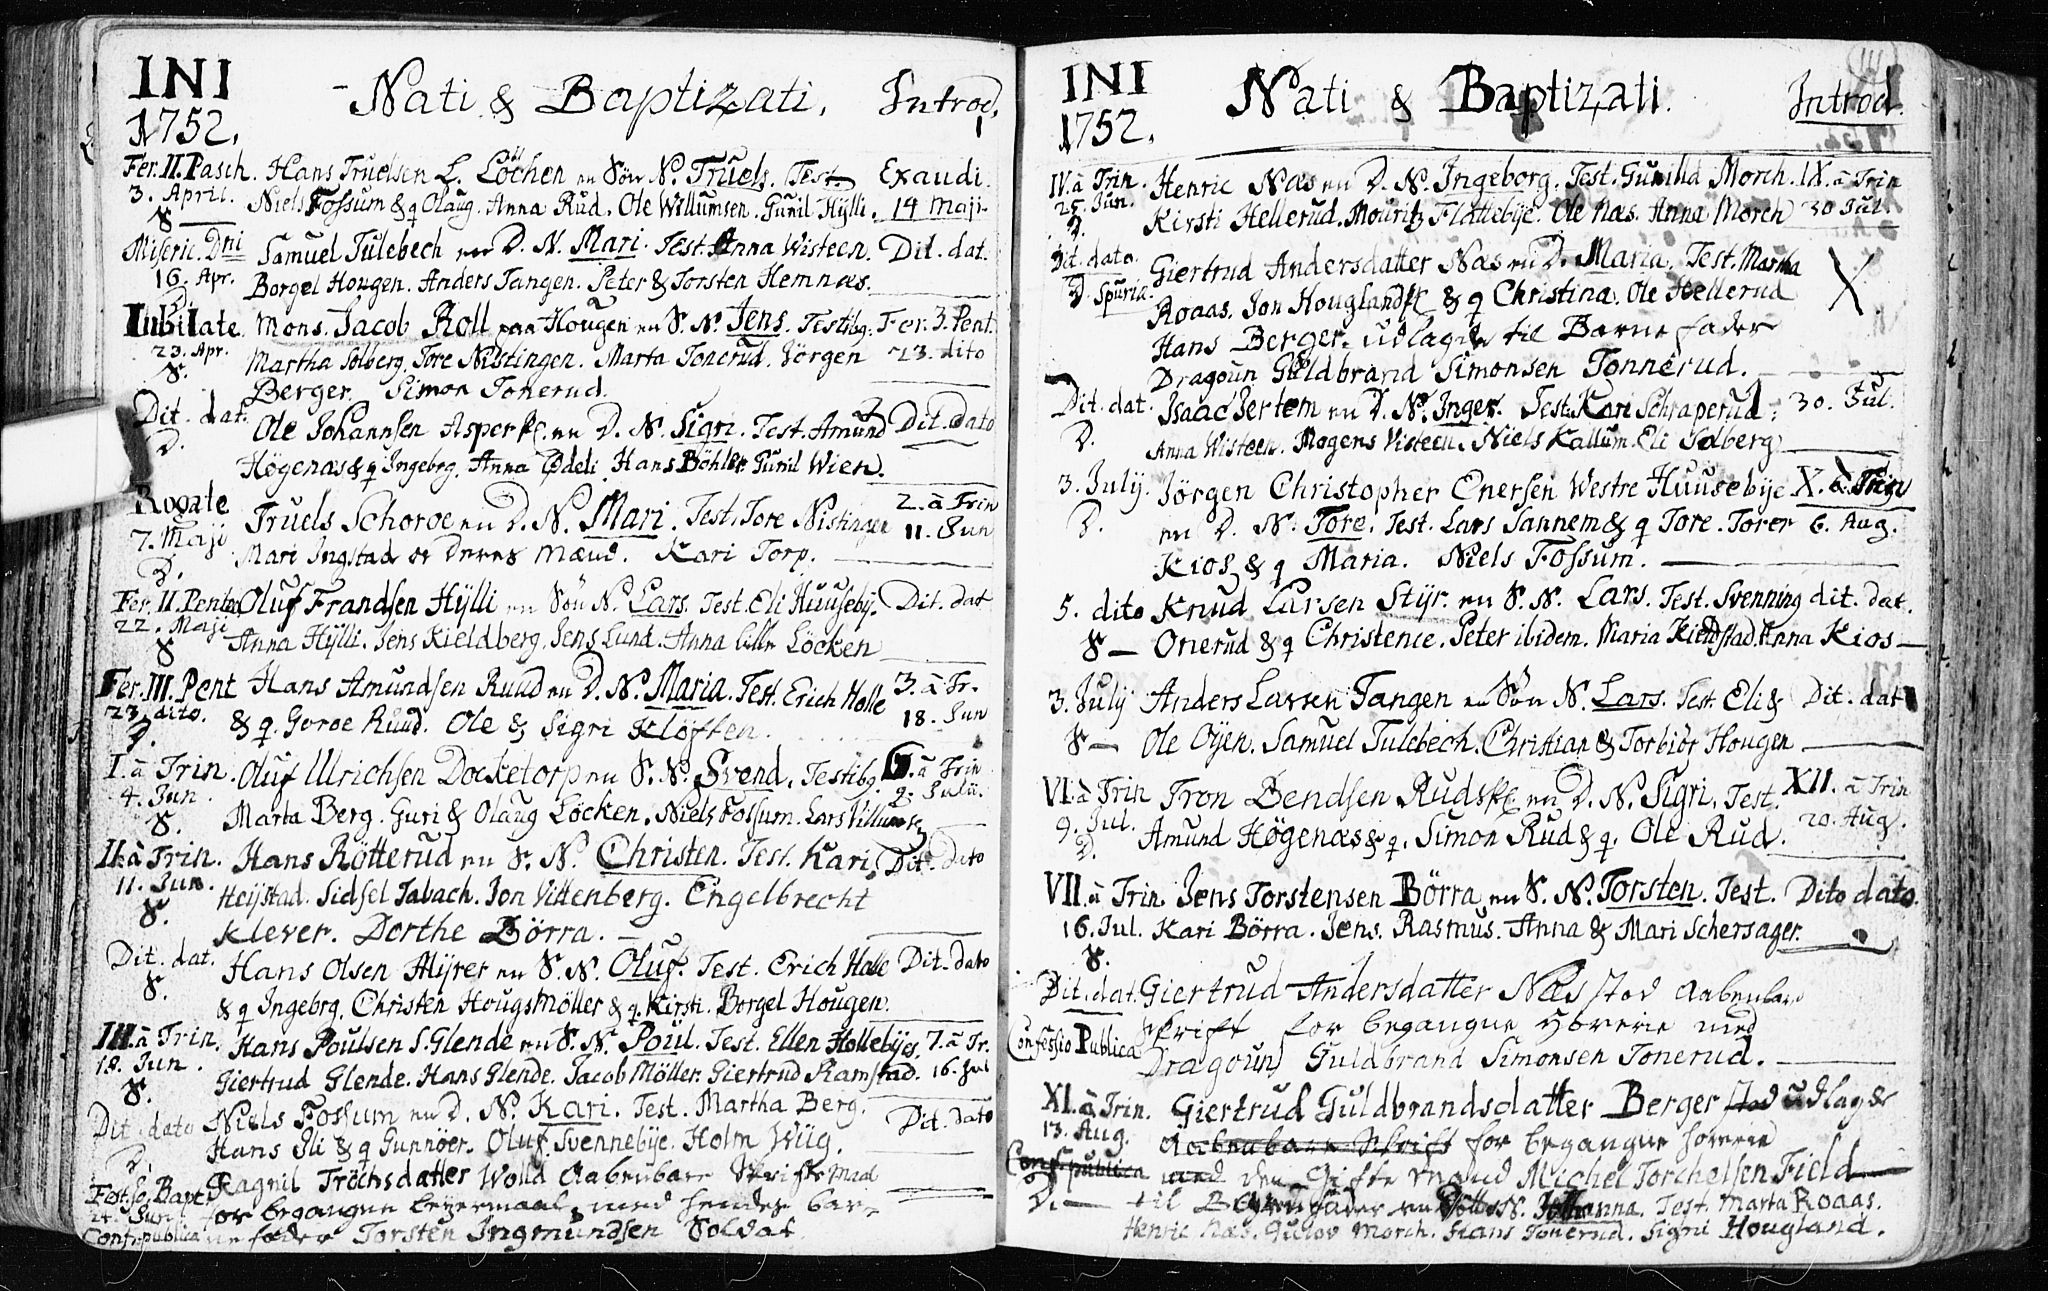 INI - Nati & Baptizati. Introd.
1752.
Fer. II. Pasch. Hans Truelsen L. Löchen en Sön N. Truels. Test. Exaudi.
3. April. Niels Fossum & q Olaug. Anna Rud. Ole Willumsen. Gunil Hÿlli. 14 Maji.
S
Miseric. Dni Samuel Tulebech en D. N. Mari. Test. Anna Wisteen. Dit. dat.
16. Apr. Borgel Hougen. Anders Tangen. Peter & Torsten Hemnæs.
D.
Iubilate Mons. Jacob Roll paa Hougen en S. N. Jens. Testibg. Fer. 3. Pent.
23. Apr. Martha Solberg. Tore Nistingen. Marta Tonerud. Jörgen 23. dito
S. Berger. Simon Tonerud.
Dit. dat. Ole Johannsen Aspersk. en D. N. Sigri. Test. Amund Dit. Dato
D. Högenæs & q Ingebrg. Anna Ødeli. Hans Böhler. Gunil Wien.
Rogate Truels Schoroe en D. N. Mari. Test. Tore Nistingen 2. à Trin
7. Maji Mari Ingstad & Deres Mænd. Kari Torp. 11. Jun
D.
Fer. II. Pentec Oluf Frandsen Hÿlli en Sön N. Lars. Test. Eli Huusebÿ. Dit. dat
22. Maji Anna Hÿlli. Jens Kieldberg. Jens Lund. Anna Löcken
S
Fer. III. Pent Hans Amundsen Ruud en D. N. Maria. Test. Erich Holle 3. à Tr.
23. dito. & q. Goroe Ruud. Ole & Sigri Klöften. 18. Jun
D.
I. à Trin. Oluf Ulrichsen Docketorp en S. N. Svend. Testibg. 6. à Trin
4. Jun. Marta Berg. Guri & Olaug Löcken. Niels Fossum. Lars Villumse 9. Julii.
S.
II. à Trin. Hans Rötterud en S. N. Christen. Test. Kari Dit. Dato
11. Jun. Heÿstad. Sidsel Tabach. Jon Vittenberg. Engelbrecht
S. Klever. Dorthe Börra.
Dit. dat. Hans Olsen Mÿrer en S. N. Oluf. Test. Erich Holle Dit. dato
S. & q Ingebrg. Christen Hougsmöller & q. Kirsti. Borgel Hougen.
III. à Trin. Hans Poulsen S. Glende en S. N. Poul. Test. Ellen Hollebÿe. 7. à Tr.
18. Jun. Giertrud Glende. Hans Glende. Jacob Möller. Giertrud Ramstad. 16. Jul
S.
Dit. dato Niels Fossum en D. N. Kari. Test. Martha Berg. Dit. dato
D. Hans Eli & q Gunnöer. Oluf Svennebÿe. Holm Wüg.
Fest. Jo. Bapt. Ragnil Tröchsdatter Wolld Aabenbare Skrifte maal
24. Jun for begangne lejermaal med hendes bar-
Conf. publica ne fader Torsten Ingmundsen Soldat.
INI Nati & Baptizati. Introd. 111
1752.
IV. à Trin. Henric Næs en D. N. Ingeborg. Test. Gunilld Morch. IX. à Trin
25. Jun. Kirsti Hellerud. Mouritz Flattebÿe. Ole Næs. Anna Morch 30 Jul.
D.
Dit. dato. Giertrud Andersdatter Næs en D. Maria. Test. Martha
D. Spuria. Roaas. Jon Houglandsk & q Christina. Ole Hellerud
Hans Berger. udlagde til Barne fader
Dragoun Guldbrand Simonsen Tonnerud.
Dit. dat. Isaac Jertem en D. N. Inger. Test. Kari Schraperud. 30. Jul.
D. Anna Wisteen. Mogens Visteen. Niels Kallum. Eli Solberg
3. Julÿ. Jörgen Christopher Enersen Westre Huusebÿe X. à Trin
D. en D. N. Tore. Test. Lars Sannem & q Tore. Torer 6. Aug.
Kios & q Maria. Niels Fossum.
5. dito Knud Larsen Stÿr. en S. N. Lars. Test. Svenning dit. dat.
S Onerud & q Christence. Peter ibidem. Maria Kieldstad. Anna Kios
3. Julÿ Anders Larsen Tangen en Sön N. Lars. Test. Eli & Dit. dat
S Ole Oÿen. Samuel Tulebech. Christian & Torbiör Hougen
VI. à Trin Tron Bendsen Rudsk en D. N. Sigri. Test. XII. à Trin
9. Jul. Amund Högenæs & q. Simon Rud & q. Ole Rud. 20. Aug.
D.
VII. à Trin. Jens Torstensen Börra en S. N. Torsten. Test. Dito dato.
16. Jul. Kari Börra. Jens. Rasmus. Anna & Mari Schersager.
S.
Dit. dat. Giertrud Andersdatter Næs stod aabenbare
Confessio Publica Skrift for begangne Horerie med
Dragoun Guldbrand Simonsen Tonerud.
XI. à Trin. Giertrud Guldbrandsdatter Berger stod udlagde
13. Aug. Aabenbare Skrift for begangne horerie
Conf. publica med den Gifte Mand Michel Torchelsen Field
D. til Barnefader en N. Johanna. Test. Marta Roaas.
Henric Næs. Gulov Morch. Hans Tonerud. Signi Hougland.